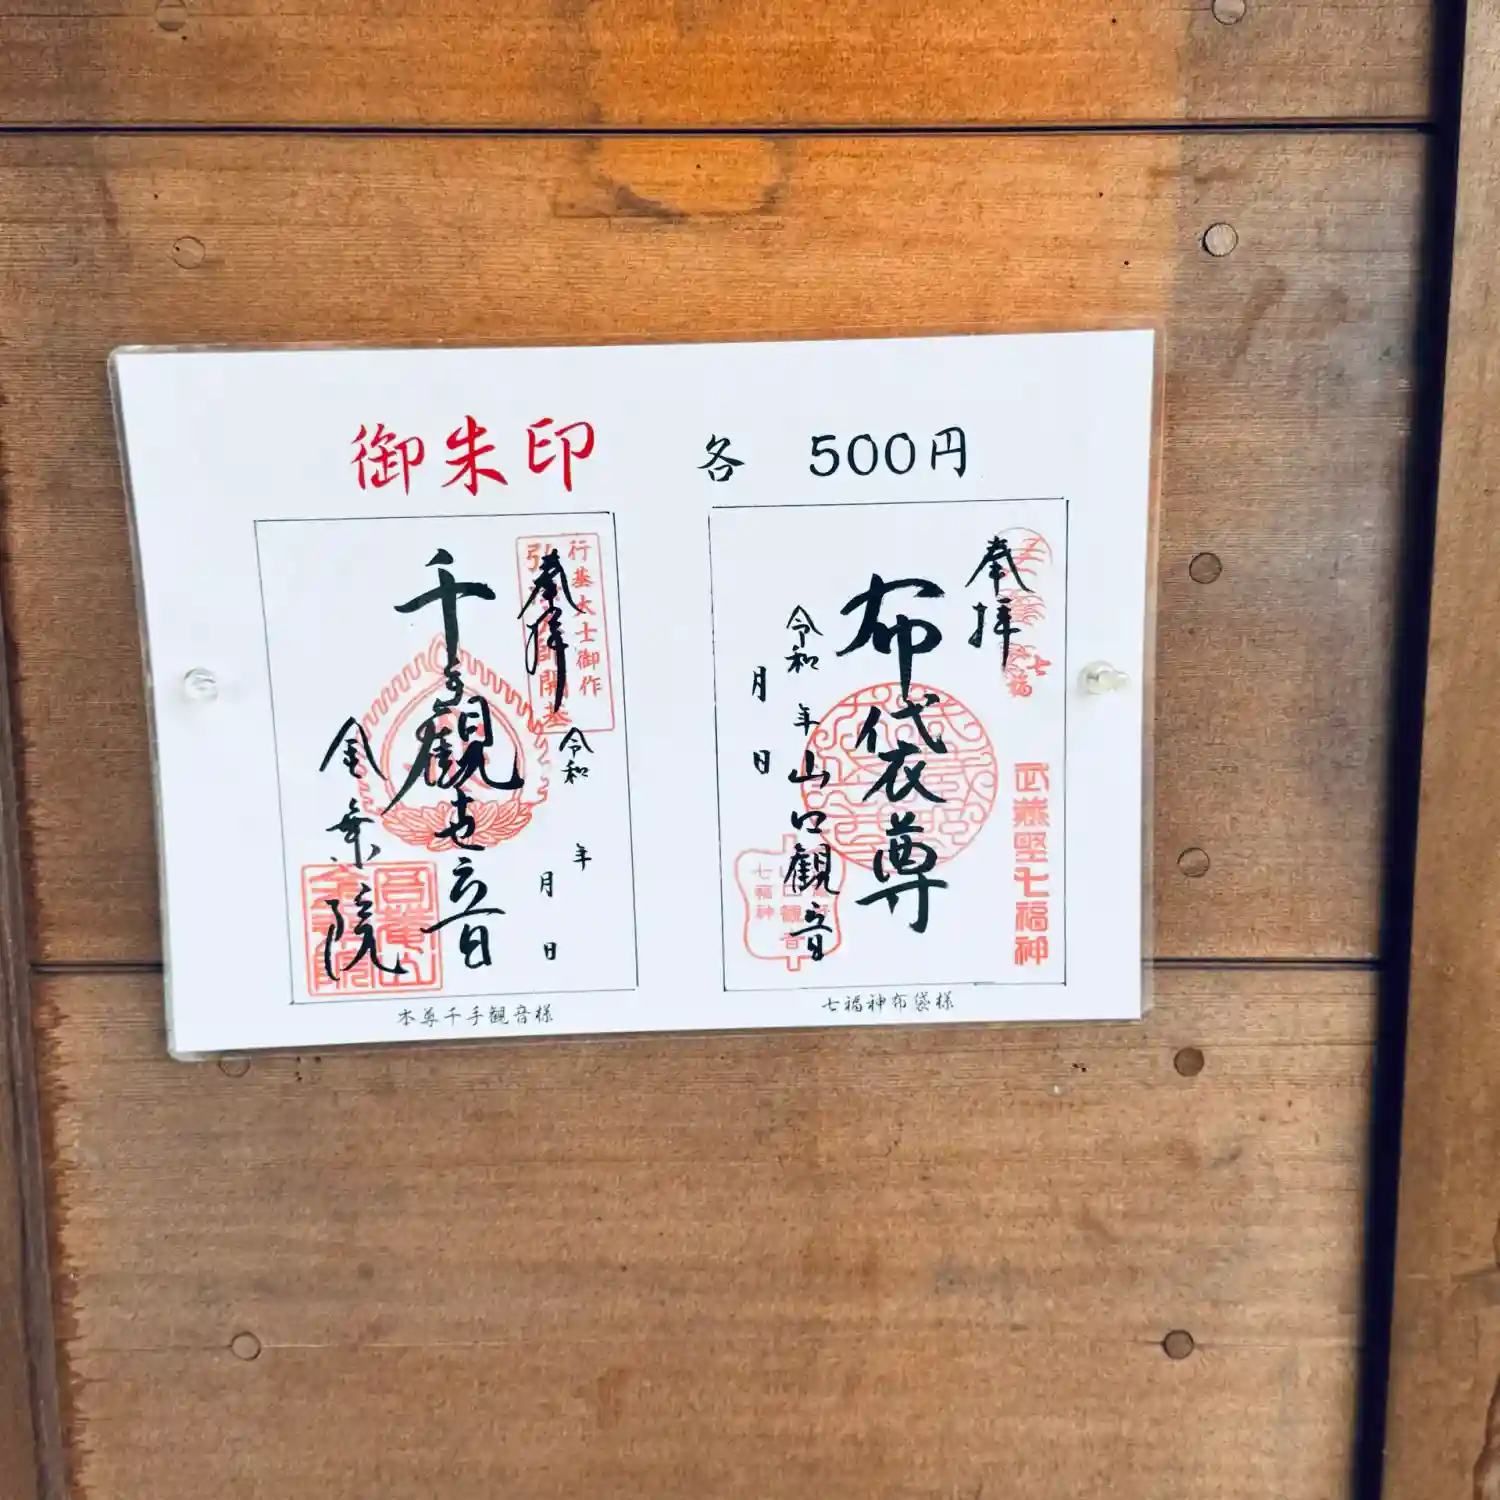 御朱印 各 500円
行基大士御作
奉拝
令和 年 月 日
千手観世音
金乗院
本尊千手観音様
奉拝
武蔵野七福神
布袋尊
山口観音
令和 年
月 日
七福神布袋様